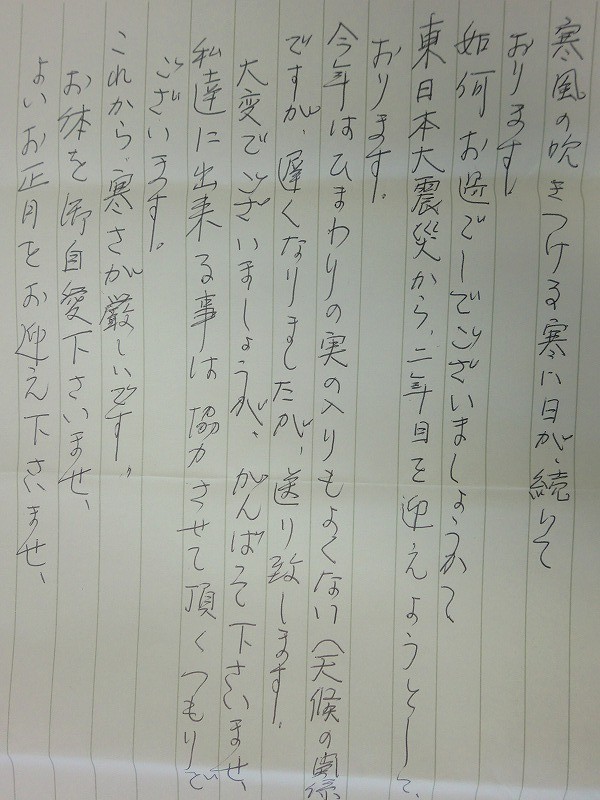 寒風の吹きつける寒い日が、続いて
おります。
如何お過でしでございましょうかて
東日本大震災から、二年目を迎えようとして、
おります。
今年はひまわりの実の入りもよくない(天候の関係
ですが、遅くなりましたが、送り致します。
大変でございましょうが、がんばって下さいませ、
私達に出来る事は協力させて頂くつもりで
ございます。
これから、寒さが厳しいです。
お体を御自愛下さいませ、
よいお正月をお迎え下さいませ、